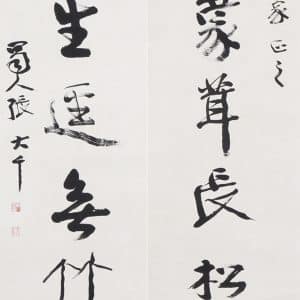 家正之
蒙茸長松
生逕無竹
蜀人張大千